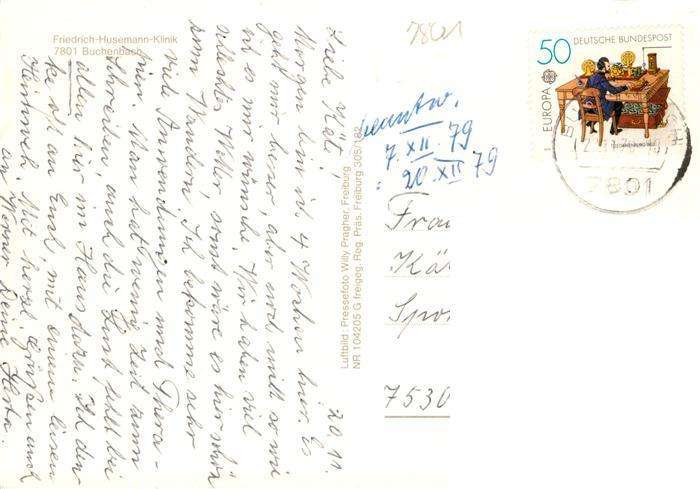 Friedrich-Husemann-Klinik
7801 Buchenbach
20.11.
Liebe Kät!
Morgen bin ich 4 Wochen hier. Es
geht mir besser, aber noch nicht so wie
ich es mir wünsche. Wir haben viel
schlechtes Wetter, sonst wäre es hier schön
zum Wandern. Ich bekomme sehr
viel Anwendungen und Thera-
pien. Man hat wenig Zeit zum
Schreiben und die Lust fehlt bei
allen hier im Haus dazu. Ich den-
ke oft an Euch, mit einem leisen
Heimweh. Mit herzl. Grüßen auch
an Werner Deine Herta.
Luftbild: Pressefoto Willy Pragher, Freiburg
NR 104205 G freigeg. Reg. Präs. Freiburg 305/182
7801
beantw.
7.XII.79
20.XII 79
50 DEUTSCHE BUNDESPOST
EUROPA
7801
Frau
Kä
Spo
7530